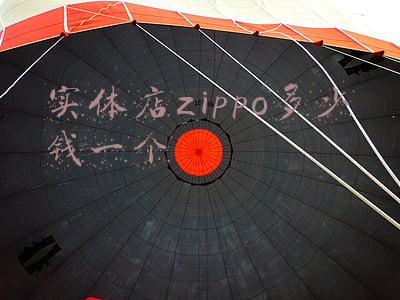 实体店zippo多少
钱一个